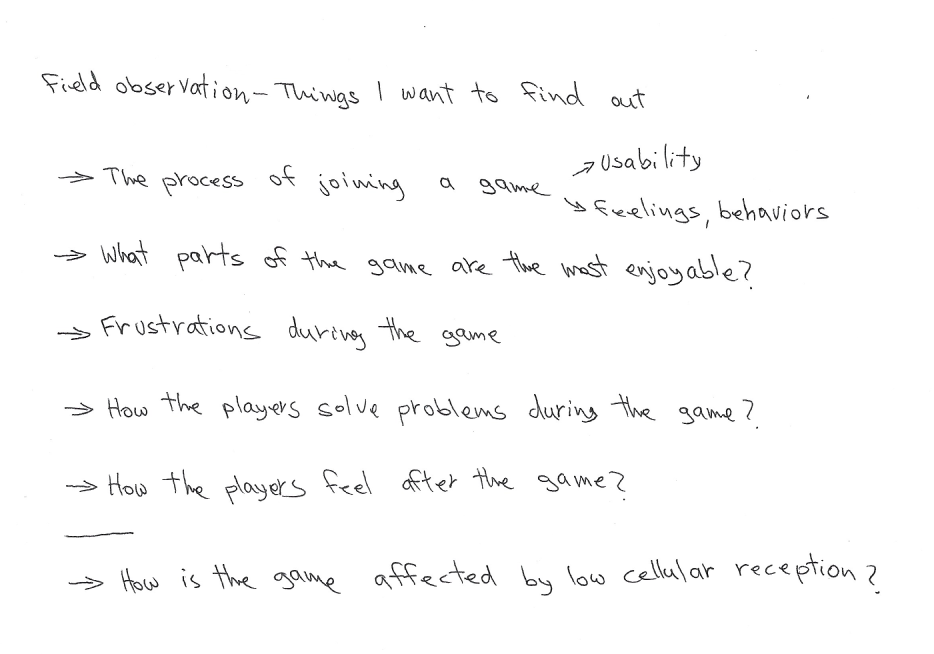 Field observation – Things I want to find out
→ The process of joining a game
↗ Usability
↘ feelings, behaviors
→ What parts of the game are the most enjoyable?
→ Frustrations during the game
→ How the players solve problems during the game?
→ How the players feel after the game?
→ How is the game affected by low cellular reception?